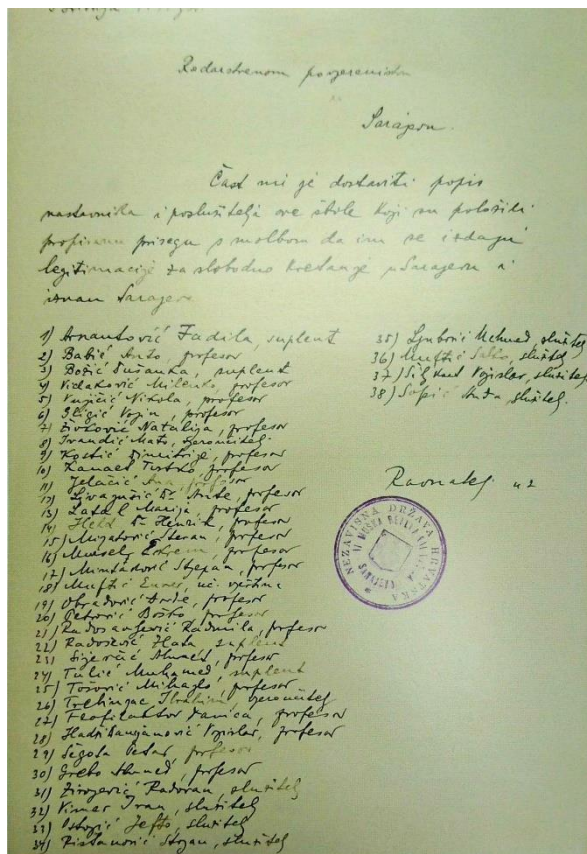 Redarstvenom povjereništvu
Sarajevu.
Čast mi je dostaviti popis
nastavnika i poslužitelja ove škole koji su položili
propisanu prisegu s molbom da im se izdaju
legitimacije za slobodno kretanje u Sarajevu i
izvan Sarajeva
1) Arnautović Fadila, suplent
2) Babić Anto, profesor
3) Božić Dušanka, suplent
4) Vidaković Milenko, profesor
5) Vujičić Nikola, profesor
6) Gligić Vojin, profesor
7) Živović Natalija, profesor
8) Ivandić Mato, vjeroučitelj
9) Kostić Dimitrije, profesor
10) Kanaet Tvrtko profesor
11) Jelačić Ana, profesor
12) Dr. Ante, profesor
13) Latal Marija, profesor
14) Held Dr Henrik, profesor
15) Migatović Stevan, profesor
16) profesor
17) Stjepan, profesor
18) Muftić Enver, uč. vještina
19) Obradović Đorđe, profesor
20) Petrović Boško, profesor
21) Radosavljević Radmila, profesor
22) Radošević Zlata suplent
23) Sijerčić Ahmed, profesor
24) Tulić Muhamed, suplent
25) Tošović Mihajlo, profesor
26) Trebinjac Ibrahim, vjeroučitelj
27) Danica, profesor
28) Vojislav, profesor
29) Šegota Petar, profesor
30) Grebo Ahmed, profesor
31) Radovan, služitelj
32) Vimer Ivan, služitelj
33) Ostojić Jefto, služitelj
34) Ristanović Stojan, služitelj
35) Ljubović Mehmed, služitelj
36) Muftić Salko, služitelj
37) Vojislav, služitelj
38) Anđa, služitelj.
Ravnatelj
NEZAVISNA DRŽAVA HRVATSKA